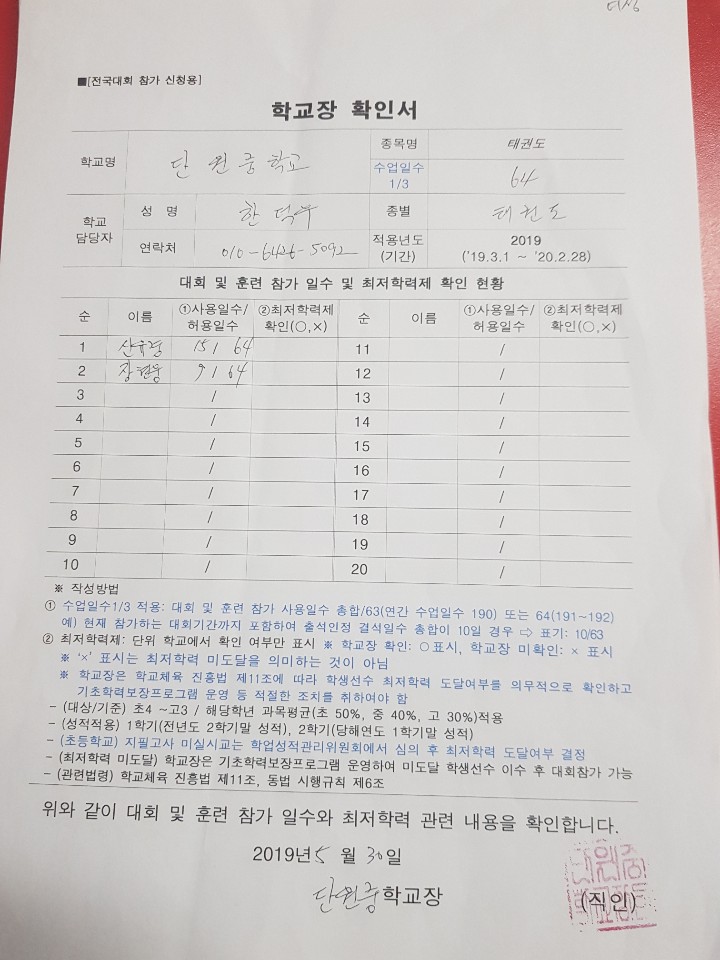 ■[전국대회 참가 신청용]
학교장 확인서
학교명 단원중학교 종목명 태권도
수업일수 1/3 64
학교 담당자 성 명 한덕수 종별 태권도
연락처 010-6426-5092 적용년도 (기간) 2019 ('19.3.1 ~ '20.2.28)
대회 및 훈련 참가 일수 및 최저학력제 확인 현황
순 이름 ①사용일수/허용일수 ②최저학력제 확인(○,×) 순 이름 ①사용일수/허용일수 ②최저학력제 확인(○,×)
1 15 / 64 11 /
2 9 / 64 12 /
3 / 13 /
4 / 14 /
5 / 15 /
6 / 16 /
7 / 17 /
8 / 18 /
9 / 19 /
10 / 20 /
※ 작성방법
① 수업일수1/3 적용: 대회 및 훈련 참가 사용일수 총합/63(연간 수업일수 190) 또는 64(191~192)
예) 현재 참가하는 대회기간까지 포함하여 출석인정 결석일수 총합이 10일 경우 ⇨ 표기: 10/63
② 최저학력제: 단위 학교에서 확인 여부만 표시 ※ 학교장 확인: ○표시, 학교장 미확인: × 표시
※ '×' 표시는 최저학력 미도달을 의미하는 것이 아님
※ 학교장은 학교체육 진흥법 제11조에 따라 학생선수 최저학력 도달여부를 의무적으로 확인하고
기초학력보장프로그램 운영 등 적절한 조치를 취하여야 함
- (대상/기준) 초4 ~고3 / 해당학년 과목평균(초 50%, 중 40%, 고 30%)적용
- (성적적용) 1학기(전년도 2학기말 성적), 2학기(당해연도 1학기말 성적)
- (초등학교) 지필고사 미실시교는 학업성적관리위원회에서 심의 후 최저학력 도달여부 결정
- (최저학력 미도달) 학교장은 기초학력보장프로그램 운영하여 미도달 학생선수 이수 후 대회참가 가능
- (관련법령) 학교체육 진흥법 제11조, 동법 시행규칙 제6조
위와 같이 대회 및 훈련 참가 일수와 최저학력 관련 내용을 확인합니다.
2019년 5 월 30일
단원중학교장 (직인)